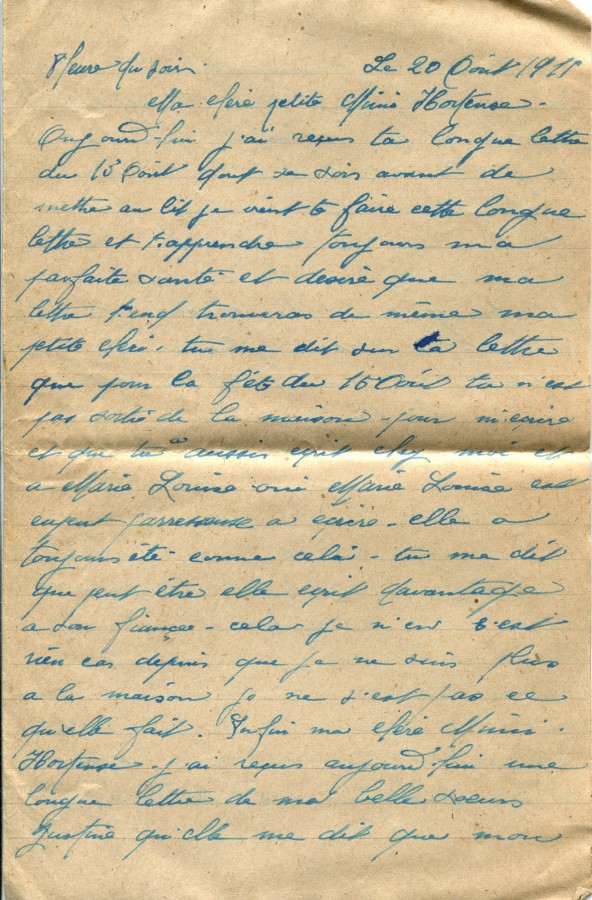 8 heure du soir. Le 20 Août 191
Ma chéré petite Mimi Hortense.
Aujourd'hui j'ai reçus ta longue lettre
du 15 Août dont ce soir avant de
mettre au lit je vient te faire cette longue
lettre et t'apprendre toujours ma
parfaite santé et desiré que ma
lettre t'end trouveras de même ma
petite chéri. tu me dit sur ta lettre
que pour la féte du 15 Août tu n'est
pas sortie de la maison pour m'ecrire
et que tu a aussis ecrit chez moi et
a Marie Louise oui Marie Louise est
parresseuse a ecrire. elle a
toujours été comme celà. tu me dit
que peut être elle ecrit davantage
a son fiançé. cela je n'en s'est
rien car depuis que je ne suis plus
a la maison je ne s'est pas ce
qu'elle fait. Enfin ma chéré Mimi.
Hortense. j'ai reçus aujourd'hui une
longue lettre de ma belle sœurs
Justine qu'elle me dit que mon